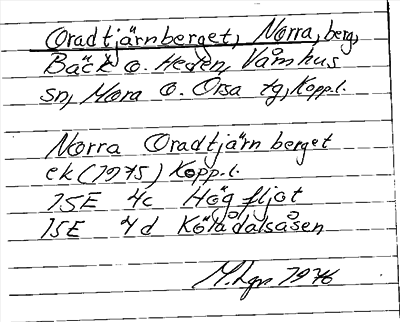 Oradtjärnberget, Norra, berg,
Bäck o. Heden, Våmhus
sn, Mora o. Orsa tg, Kopp.l.
Norra Oradtjärnberget
ek (1975) Kopp.l.
15E 4c Högfljot
15E 4d Kölådalsåsen
M.Lgr 1976